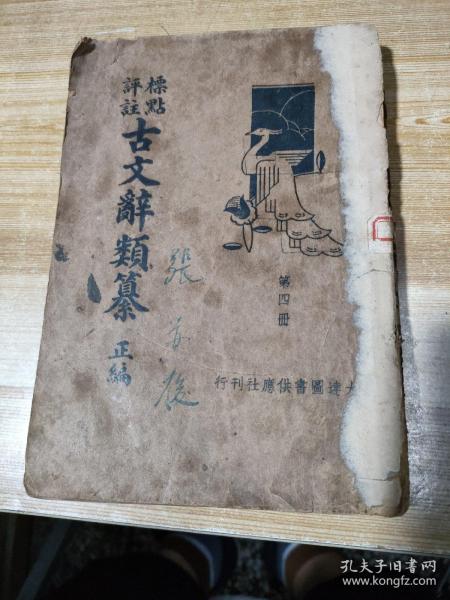 標點
評註
古文辭類纂
正編
第四冊
大達圖書供應社刊行
張
孔夫子旧书网
www.kongfz.com